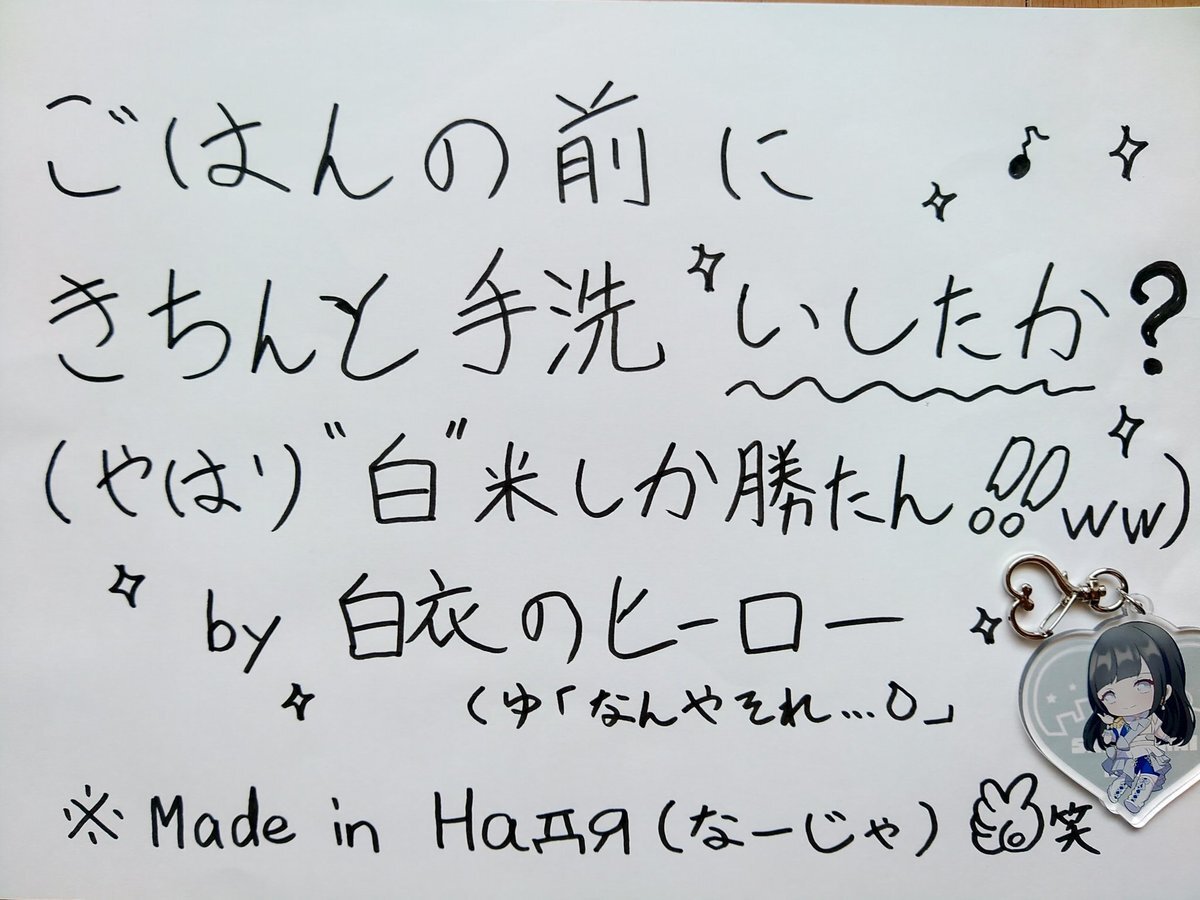 ごはんの前に♪
きちんと手洗いしたか?
(やはり"白"米しか勝たん!!ww)
by 白衣のヒーロー
(ゆ「なんやそれ…0」
※ Made in Надя (なーじゃ) 👌笑